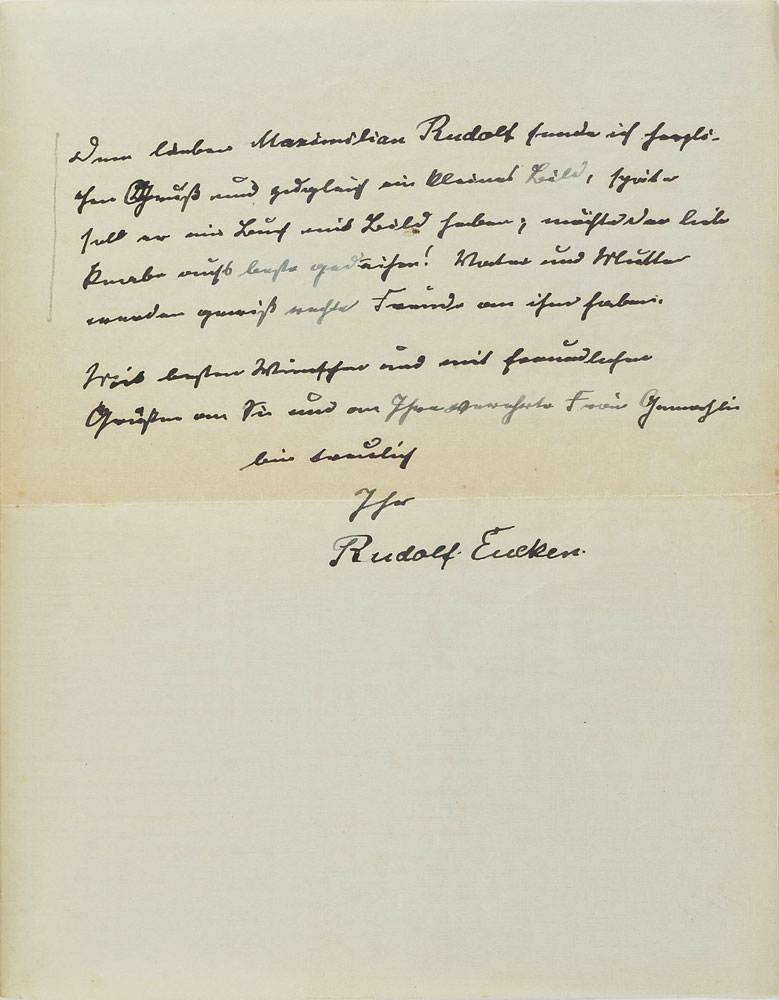 Dem lieben Maximilian Rudolf sende ich herzli-
chen Gruß und zugleich ein kleines Bild, später
soll er ein Buch mit Bild haben; möchte der liebe
Knabe aufs beste gedeihen! Vater und Mutter
werden gewiß rechte Freude an ihm haben.
Mit besten Wünschen und mit freundlichen
Grüßen an Sie und an Ihre verehrte Frau Gemahlin
bin treulich
Ihr
Rudolf Eucken.